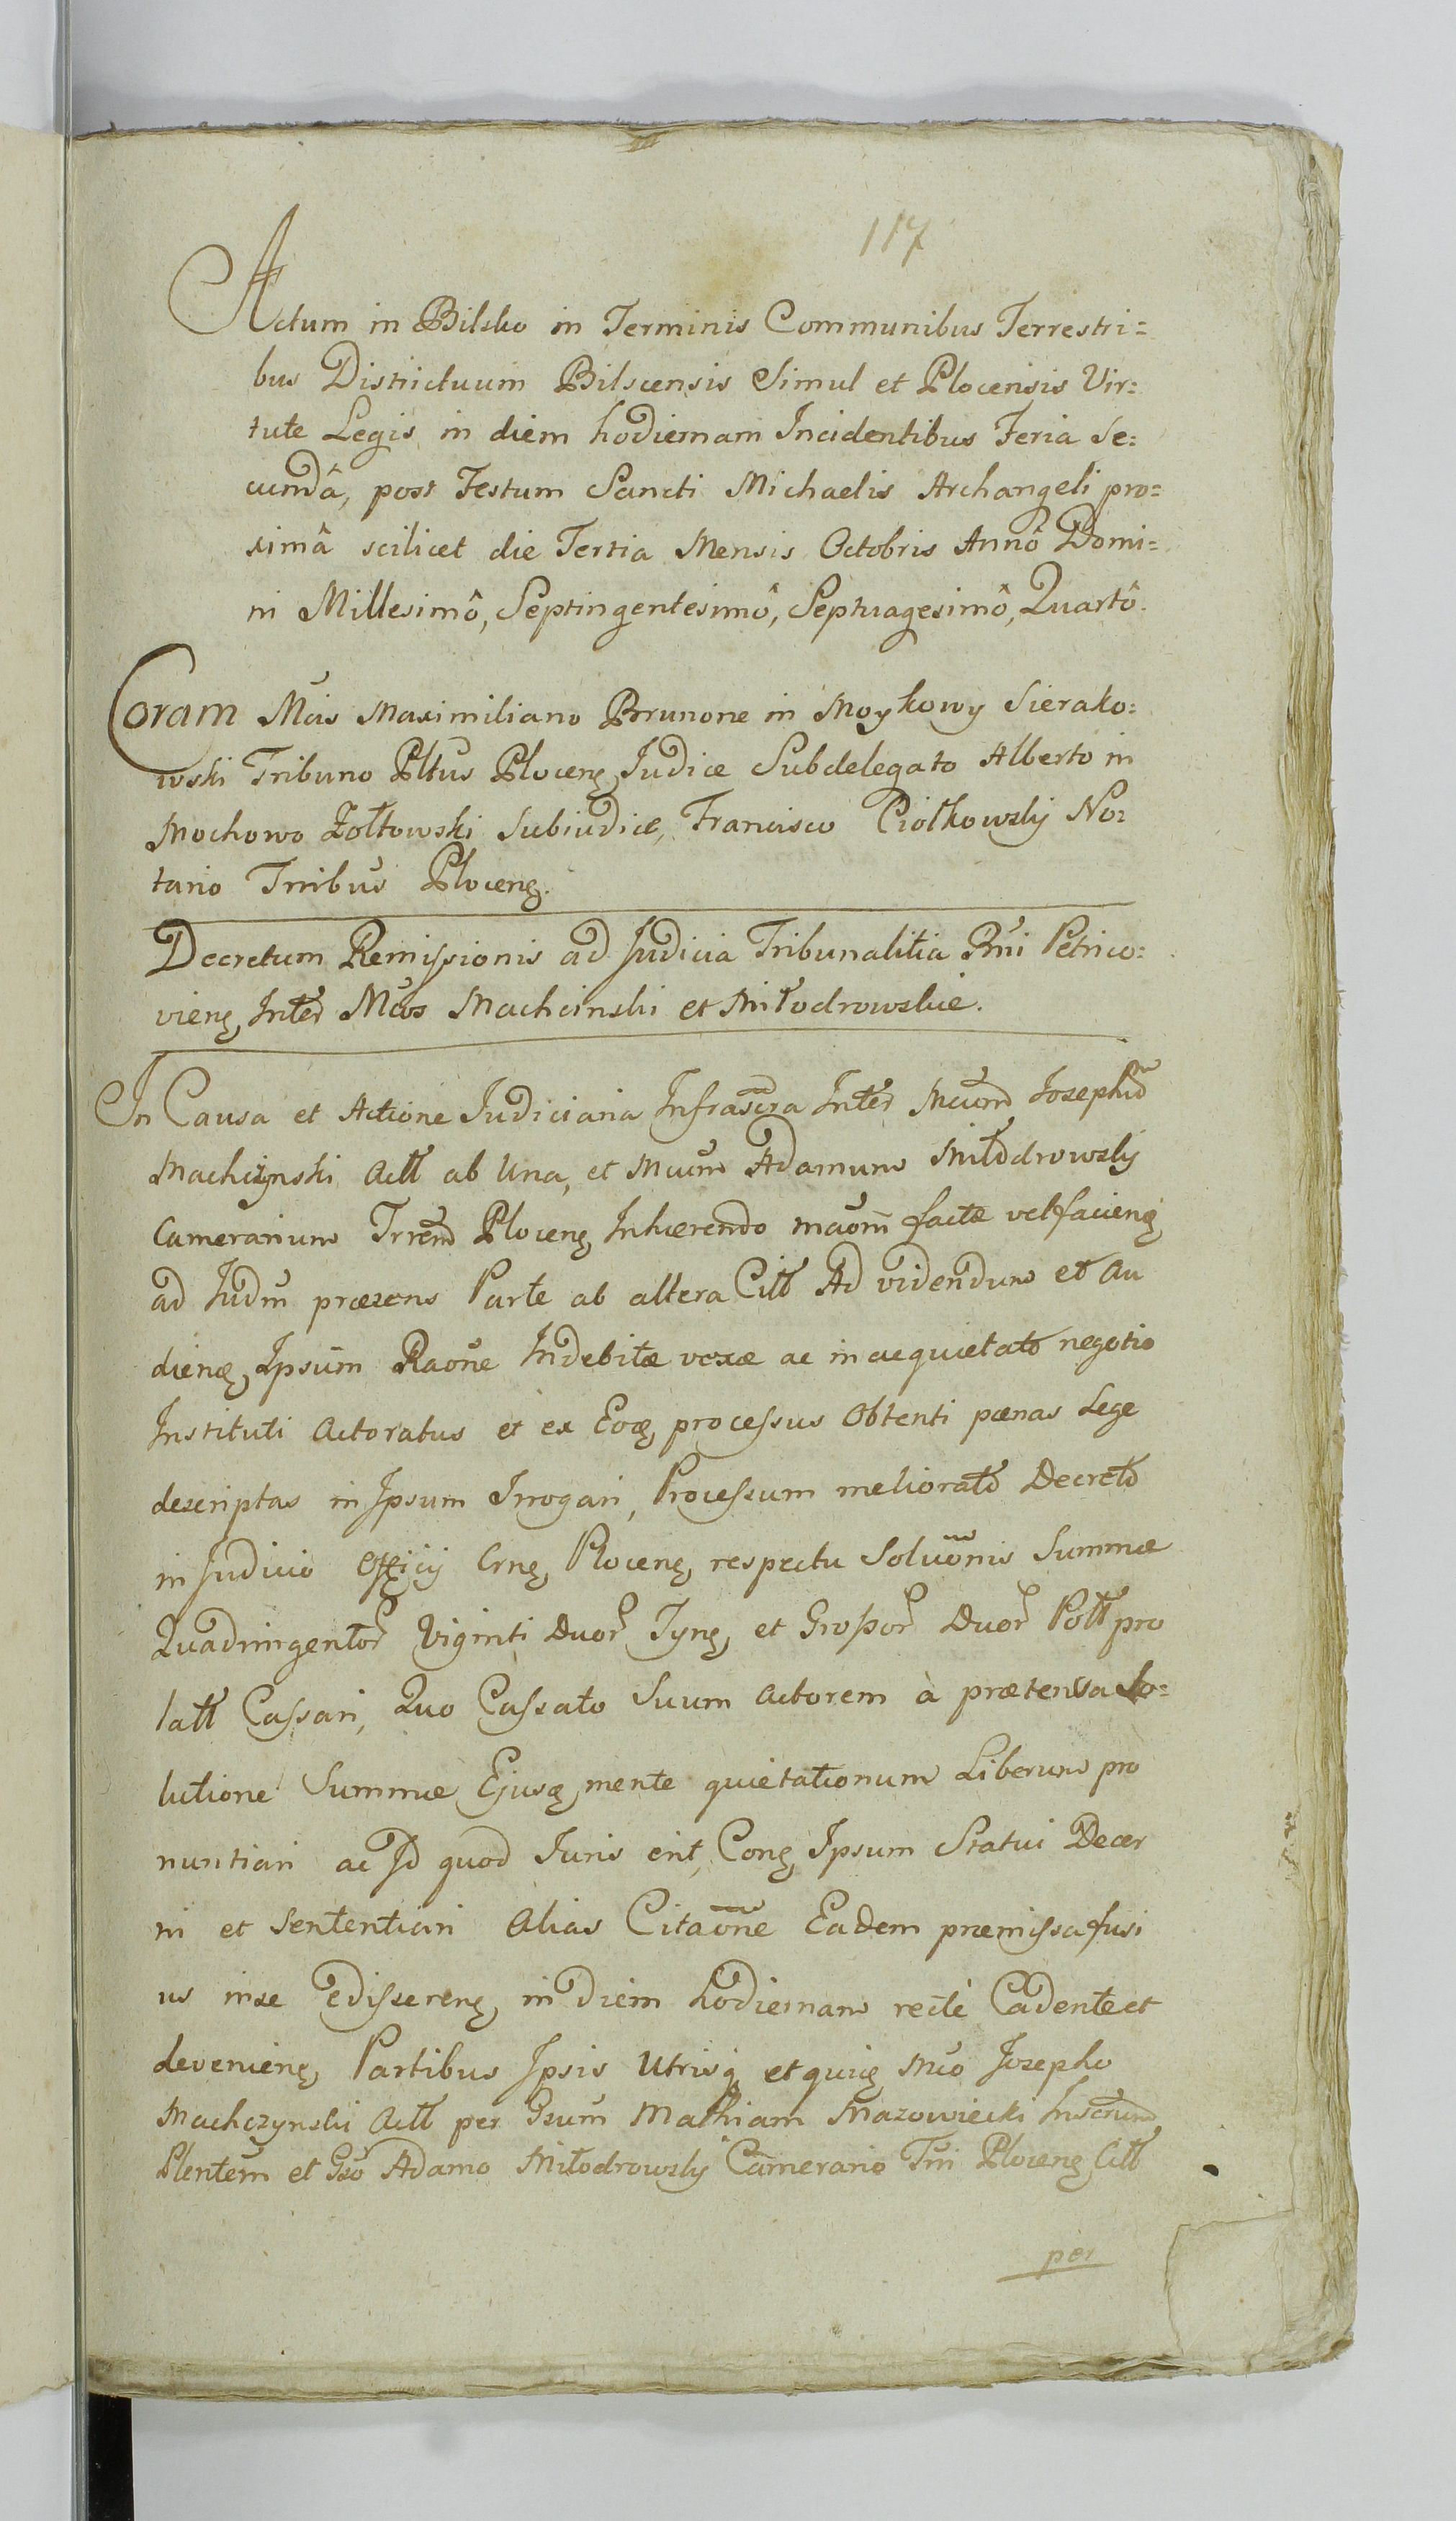 117
Actum in Bilsko in Terminis Communibus Terrestri=
bus Districtuum Bilscensis Simul et Plocensis Vir=
tute Legis in diem hodiernam Incidentibus Feria Se=
cundâ, post Festum Sancti Michaelis Archangeli pro=
ximâ scilicet die Tertia Mensis Octobris Annô Domi=
ni Millesimô, Septingentesimô, Septuagesimô, Quartô.
Coram Mcis Maximiliano Brunone in Moykowy Sierako=
wski Tribuno Pltus Ploceng Judice Subdelegato Alberto in
Mochowo Zołtowski Subiudice, Francisco Ciołkowsky No=
tario Trribus Ploceng.
Decretum Remissionis ad Judicia Tribunalitia Rni Petrico=
vieng, Inter Mcos Machcinski et Miłodrowskie.
In Causa et Actione Judiciaria Infrascra Inter Mcum Josephum
Machczynski Actt ab Una, et Mcum Adamum Miłodrowsky
Camerarium Trrem Ploceng Inhærendo maonm factæ vel facieng
ad Judm præsens Parte ab altera Citt Ad videndum et Au
dieng, Ipsum Raone Indebitæ vexæ ac in acquietato negotio
Instituti Actoratus et ex Eoq, processus Obtenti pænas Lege
descriptas in Ipsum Irrogari, Processum meliorato Decreto
in Judicio Officij Crng, Ploceng, respectu Soluonis Summæ
Quadringentor Viginti Duor Tyng, et Grossor Duor Poll pro
latt Cassari, Quo Cassato Suum Actorem à prætensa So=
lutione Summæ Ejusq, mente quietationum Liberum pro
nuntiari ac Id quod Juris erit, Cong, Ipsum Statui Decer
ni et Sententiari Alias Citaone Eadem præmissa fusi
us inse Edissereng, in Diem hodiernam rectè Cadente et
devenieng, Partibus Ipsis Utrisq et quig Mco Josepho
Machczynski Actt per Gsum Mathiam Mazowiecki Inscrum
Plentem et Gso Adamo Miłodrowsky Camerario Trri Ploceng Citt
per